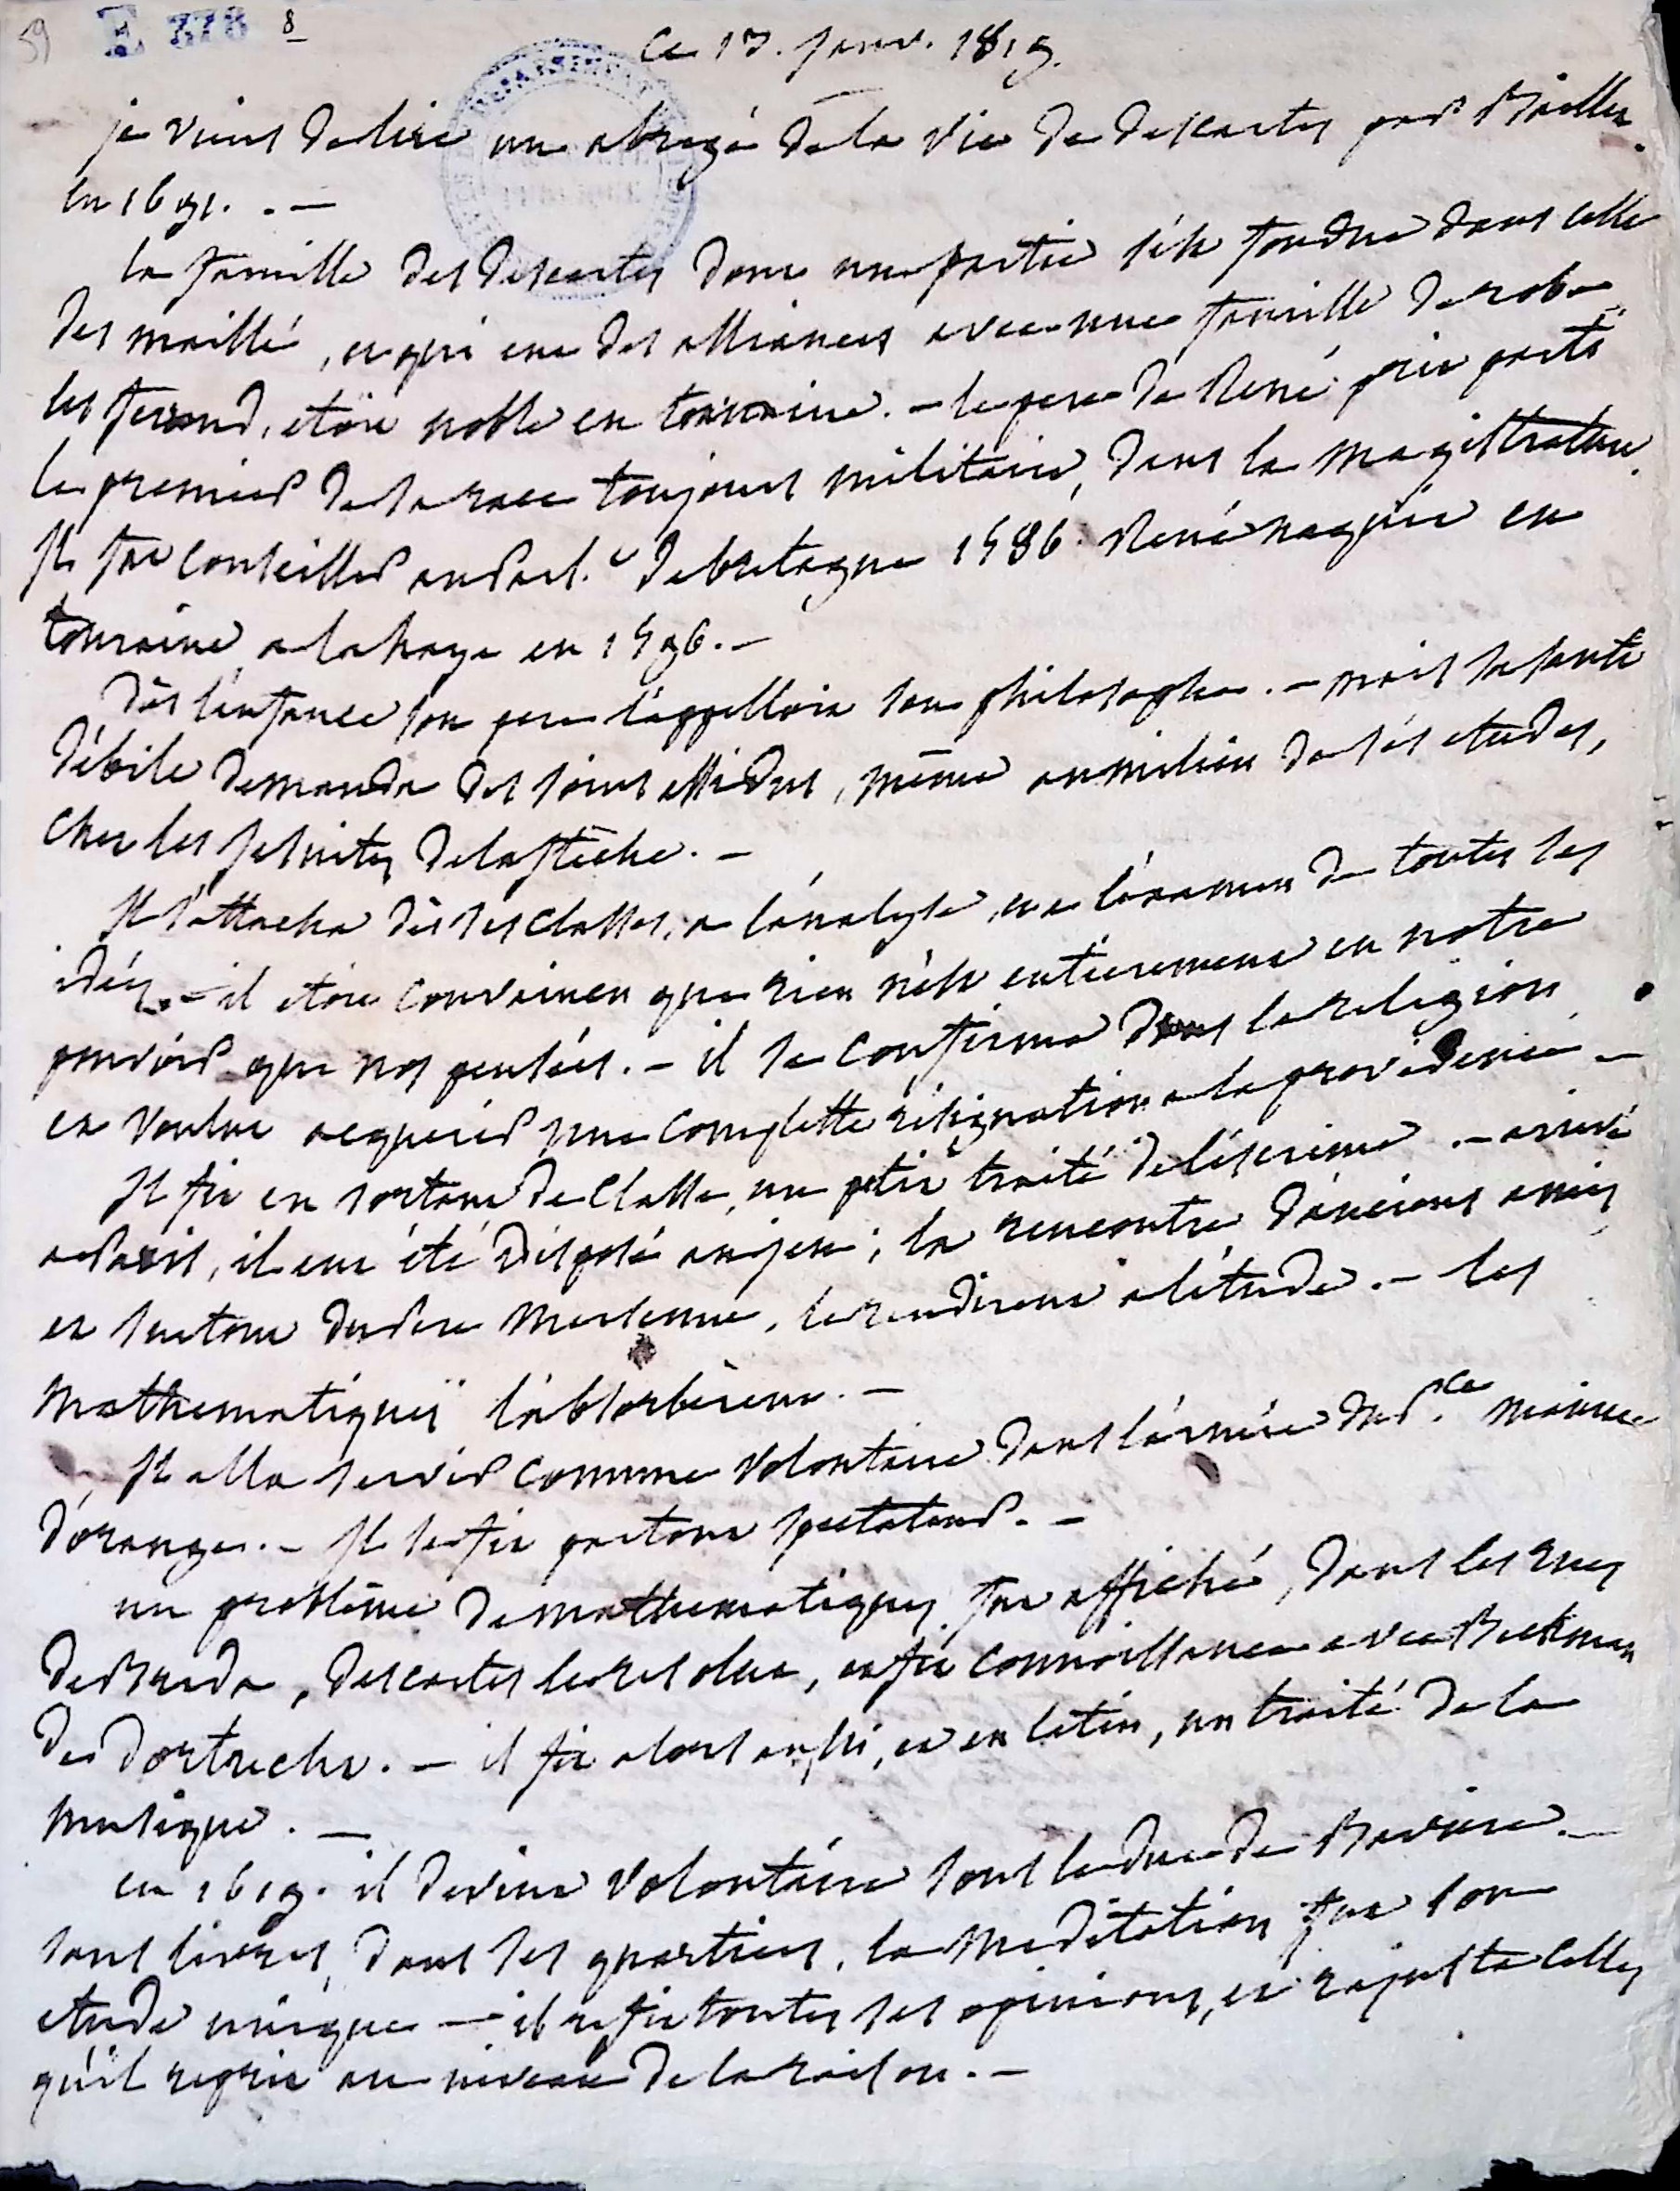 59 E 378 8
Ce 17. janv. 1819.
je viens de lire un abregé de la vie de descartes par Baillet
en 1691. . —
la famille des descartes dont une partie s'est fondue dans celle
des maillé, et qui eut des alliances avec une famille de robe
les ferrand, etoit noble en touraine. — le pere de René prit parti
le premier de sa race toujours militaire, dans la magistrature.
Il fut conseiller au parl.t de bretagne 1586. René naquit en
touraine a la haye en 1596. —
Dès l'enfance son pere l'appelloit son philosophe. — mais sa santé
débile demanda des soins assidus, même au milieu de ses etudes,
chez les jesuites de la flèche. —
Il s'attacha dès ses classes, a l'analyse, et a l'examen de toutes les
idées. — il etoit convaincu que rien n'est entierement en notre
pouvoir que nos pensées. — il se confirma dans la religion
et voulut acquerir une complette résignation a la providence —
Il fit en sortant de classe, un petit traité de l'éscrime. — arrivé
a Paris, il eut été disposé au jeu; la rencontre d'anciens amis
et surtout du Pere Mersenne, le rendirent a l'étude. — les
Mathematiques l'absorbèrent. —
Il alla servir comme volontaire dans l'armée du P.ce maurice
d'orange. — Il se fit partout spectateur. —
un problème de mathematiques fut affiché, dans les rues
de Breda, descartes le resolut, et fit connoissance avec Beckman
de Dortrecht. — il fit alors aussi, et en latin, un traité de la
musique. —
en 1619. il devint volontaire sous le duc de Baviere. —
sans livres, dans ses quartiers, la meditation fut son
etude unique — il refit toutes ses opinions, et rajusta celles
qu'il reprit au niveau de la raison. —